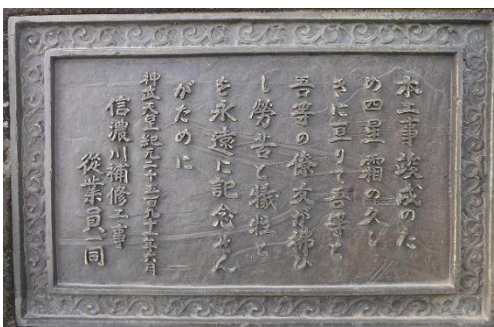 本工事竣成のた
め四星霜の久し
きに亙りて吾等と
吾等の僚友が拂ひ
し勞苦と犠牲と
を永遠に記念せん
がために
神武天皇紀元二千五百九十一年六月
信濃川補修工事
從業員一同